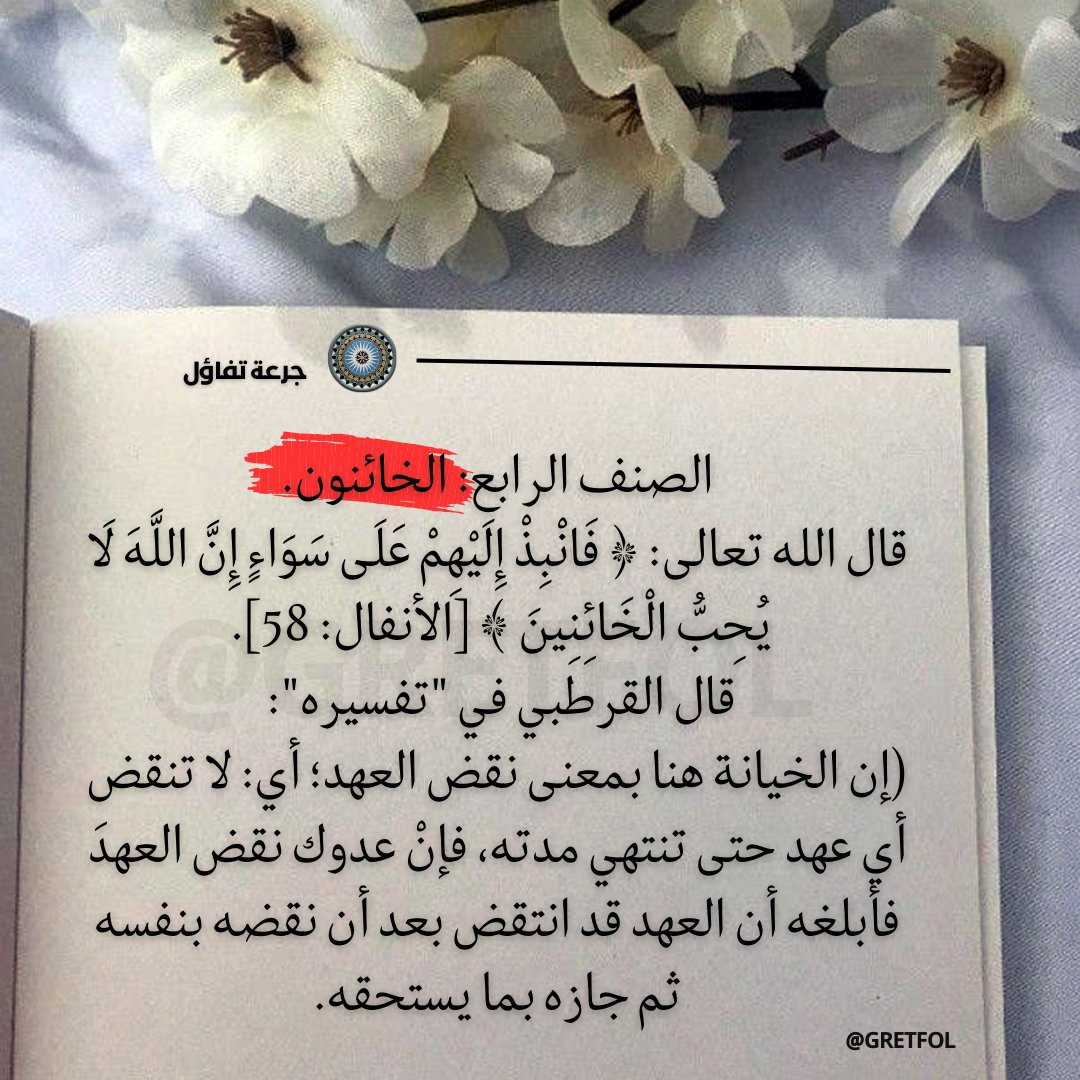 جرعة تفاؤل
الصنف الرابع: الخائنون.
قال الله تعالى: ﴿ فَانْبِذْ إِلَيْهِمْ عَلَى سَوَاءٍ إِنَّ اللَّهَ لَا
يُحِبُّ الْخَائِنِينَ ﴾ [الأنفال: 58].
قال القرطبي في "تفسيره":
(إن الخيانة هنا بمعنى نقض العهد؛ أي: لا تنقض
أي عهد حتى تنتهي مدته، فإنْ عدوك نقض العهدَ
فأبلغه أن العهد قد انتقض بعد أن نقضه بنفسه
ثم جازه بما يستحقه.
@GRETFOL
@GRETFOL